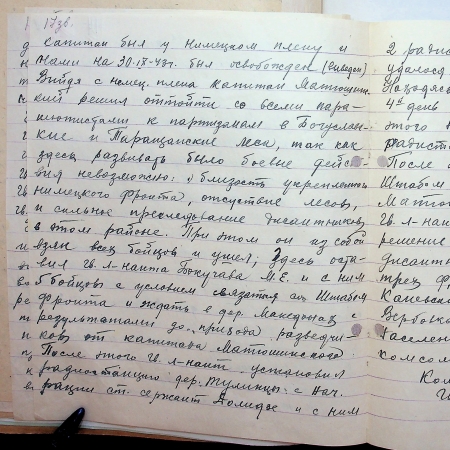 17зв.
капитан был у немецком плену и
нами на 30.IX-43г. был освобожден (выведен)
Выйдя с немец. плена капитан Матюшин-
ский решил оттойти со всеми пара-
шютистами к партизанам в Богуслав-
кие и Таращанские леса, так как
здесь развивать было боевые дейс-
вия невозможно: близость укрепленного
немецкого фронта, отсутствие лесов,
и сильные преследование десантников
в этом районе. При этом он из собой
взял всех бойцов и ушел, здесь оста-
вил гв. л-нанта М.Е. и с ним
5 бойцов с условием связатся со Штабом
фронта и ждать в дер. с
результатами до прихода разведчи-
ков от капитана Матюшинского
После этого гв. л-нант установил
радиостанцию дер. Тулинцы с Нач.
рации ст. сержант и с ним
2 радис
удалося
Находясь
4й день
этого
радист
После
Штабом
Матюш
гв. л-нан
решение
десантн
трех
Каневск
Вербовка
населен
комсом
Ком